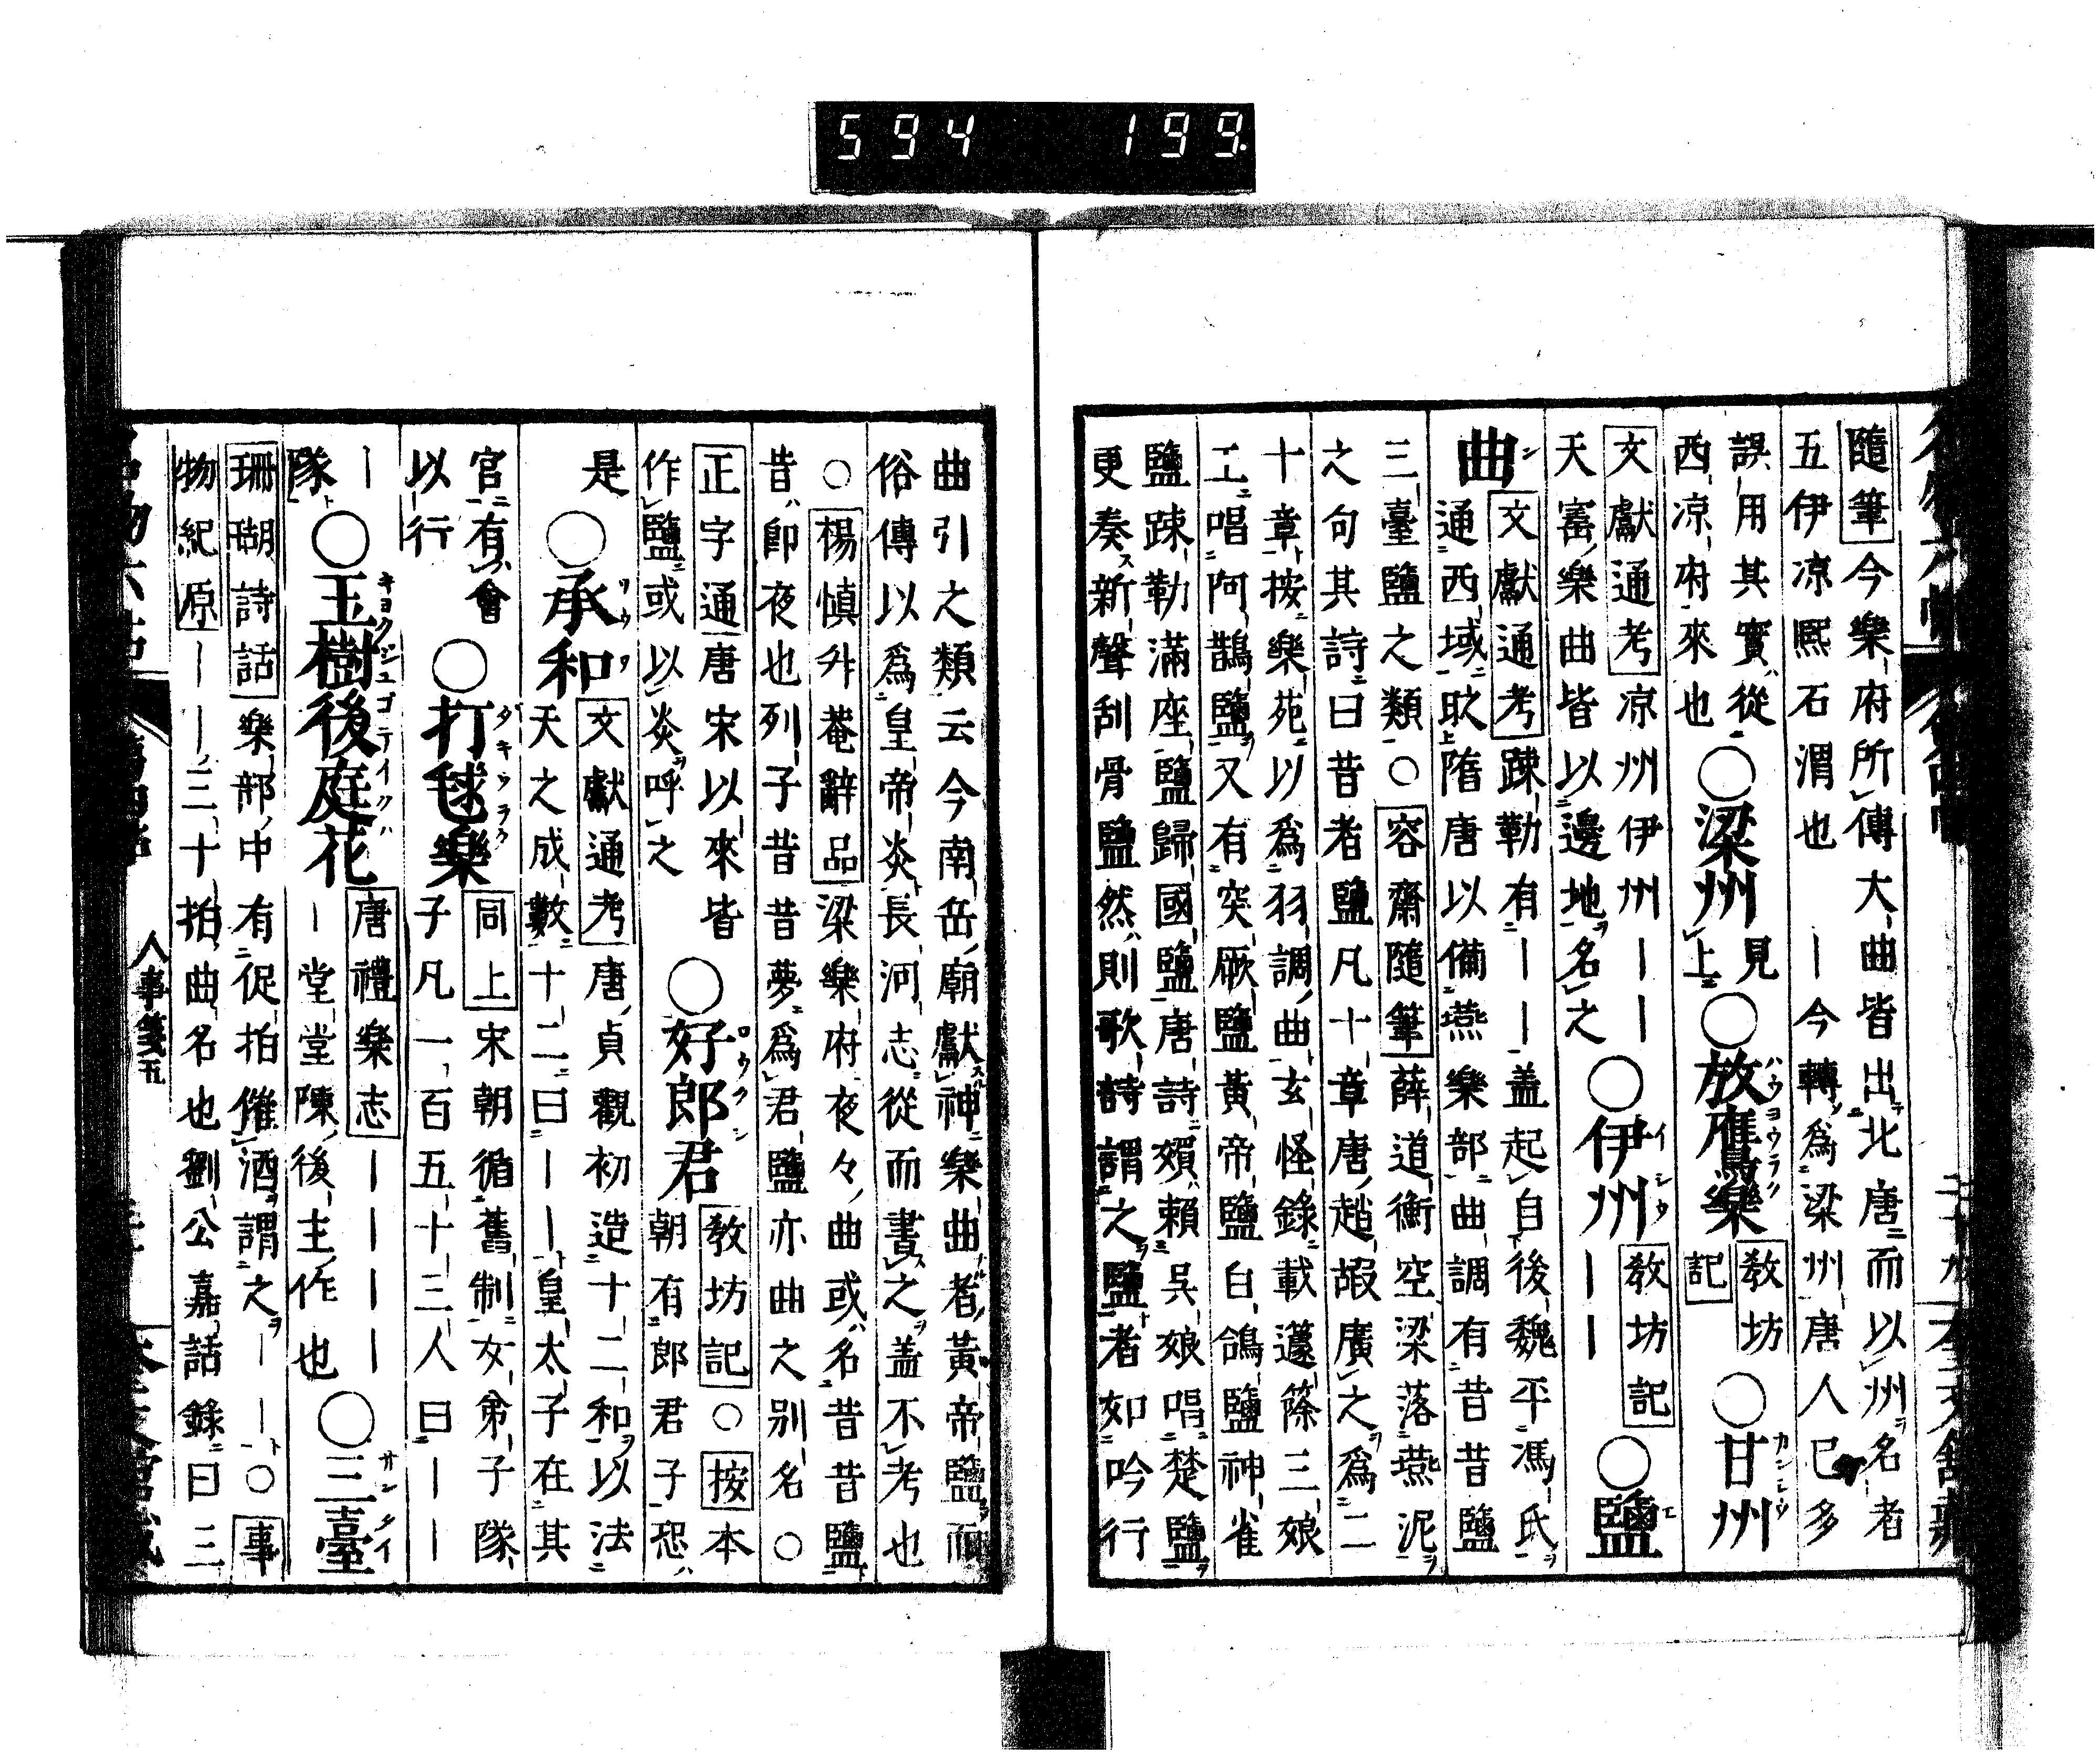 隨筆今樂府所傳大曲皆出北唐而以州名者
五伊凉熙石渭也　｜今轉爲梁州唐人已多
誤用其實從
西凉府來也
○梁州 見上 ○放鷹樂 敎坊記 ○甘州
ハウヨウラク
カンシウ
文獻通考凉州伊州｜｜
天富樂曲皆以邊地名之
○伊州 敎坊記｜｜ ○鹽
イシウ
エ
曲
ン
文獻通考踈勒有｜｜盖起自後魏平馮氏
通西域取隋唐以備燕樂部曲調有昔昔鹽
三臺鹽之類○容齋隨筆薛道衡空梁落燕泥
之句其詩曰昔者鹽凡十章唐趙嘏廣之爲二
十章按樂苑以爲羽調曲玄怪錄載蘧篨三娘
工唱阿鵲鹽又有突厥鹽黃帝鹽白鴿鹽神雀
鹽踈勒滿座鹽歸國鹽唐詩賴吳娘唱楚鹽
更奏新聲刮骨鹽然則歌詩謂之鹽者如吟行
曲引之類云今南岳廟獻神樂曲者黃帝鹽而
俗傳以爲皇帝炎長河志從而書之盖不考也
○楊慎升菴辭品梁樂府夜々曲或名昔昔鹽
昔卽夜也列子昔昔夢爲君鹽亦曲之別名○
正字通唐宋以來皆
作鹽或以炎呼之
○好郎君 敎坊記○按本
ロウクン
朝有郎君子恐
是
○承和
ヲウワ
文獻通考唐貞觀初造十二和以法
天之成數十二曰｜｜皇太子在其
官有會
以行
○打毬樂
ダキウラク
同上宋朝循舊制女弟子隊
子凡一百五十三人曰｜｜
｜
隊
○玉樹後庭花
キヨクジユゴテイクハ
唐禮樂志｜｜｜｜
｜堂堂陳後主作也
○三臺
サンタイ
珊瑚詩話樂部中有促拍催酒謂之｜｜○事
物紀原｜｜三十拍曲名也劉公嘉話錄曰三
人事箋五
594 199